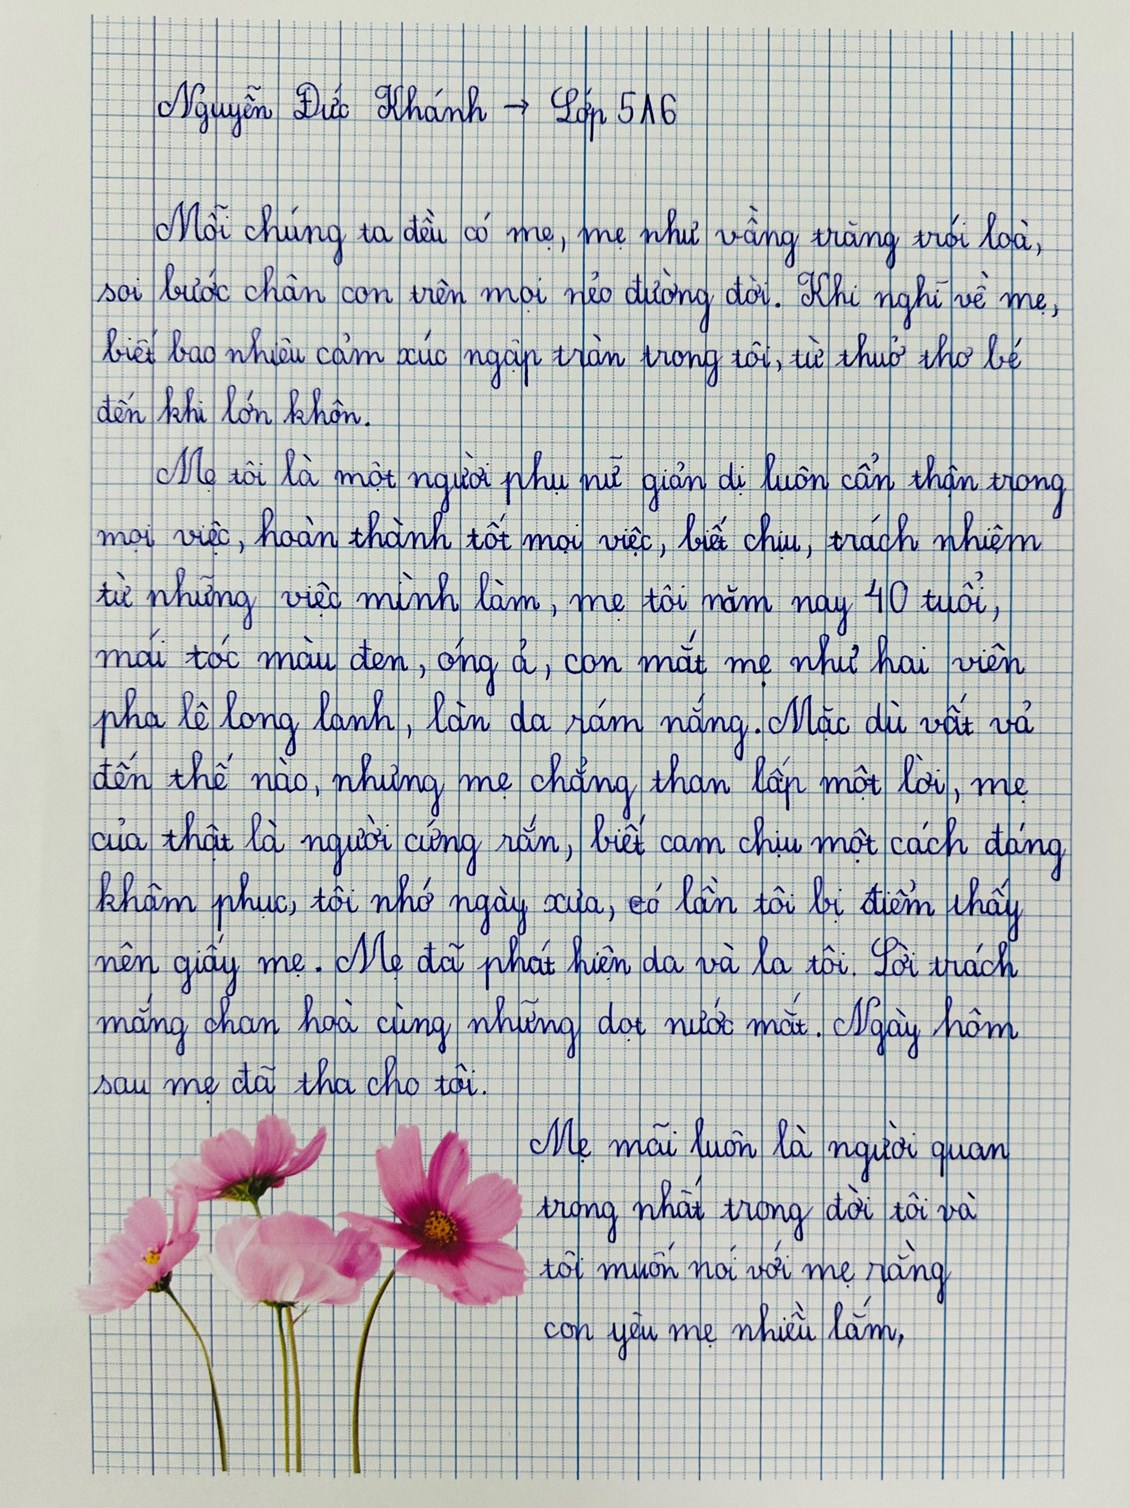 Nguyễn Đức Khánh → Lớp 5A6
Mỗi chúng ta đều có mẹ, mẹ như vầng trăng trói loà,
soi bước chân con trên mọi nẻo đường đời. Khi nghĩ về mẹ,
biết bao nhiêu cảm xúc ngập tràn trong tôi, từ thuở thơ bé
đến khi lớn khôn.
Mẹ tôi là một người phụ nữ giản dị luôn cẩn thận trong
mọi việc, hoàn thành tốt mọi việc, biết chịu, trách nhiệm
từ những việc mình làm, mẹ tôi năm nay 40 tuổi,
mái tóc màu đen, óng ả, con mắt mẹ như hai viên
pha lê long lanh, làn da rám nắng. Mặc dù vất vả
đến thế nào, nhưng mẹ chẳng than lấp một lời, mẹ
của thật là người cứng rắn, biết cam chịu một cách đáng
khâm phục, tôi nhớ ngày xưa, có lần tôi bị điểm thấy
nên giấy mẹ. Mẹ đã phát hiện da và la tôi. Lời trách
mắng chan hoà cùng những dọt nước mắt. Ngày hôm
sau mẹ đã tha cho tôi.
Mẹ mãi luôn là người quan
trọng nhất trong đời tôi và
tôi muốn nói với mẹ rằng
con yêu mẹ nhiều lắm,